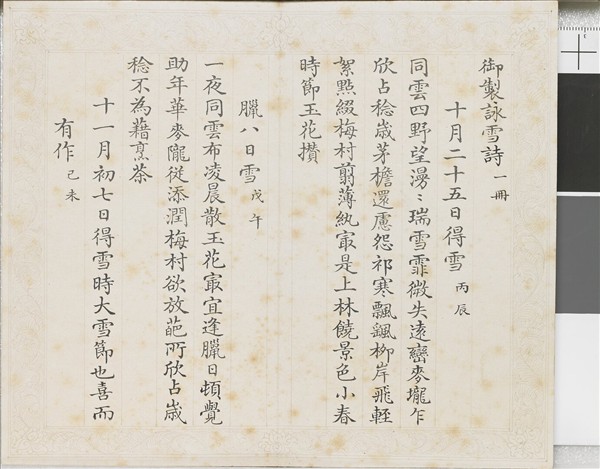 御製詠雪詩一冊
十月二十五日得雪丙辰
同雲四野望漫〻瑞雪霏微失遠巒麥壠乍
欣占稔歲茅檐還慮怨祁寒飄颻柳岸飛輕
絮點綴梅村翦薄紈㝡是上林饒景色小春
時節玉花攢
臘八日雪戊午
一夜同雲布凌晨散玉花㝡宜逢臘日頓覺
助年華麥隴從添潤梅村欲放葩所欣占歲
稔不為藉烹茶
十一月初七日得雪時大雪節也喜而
有作己未